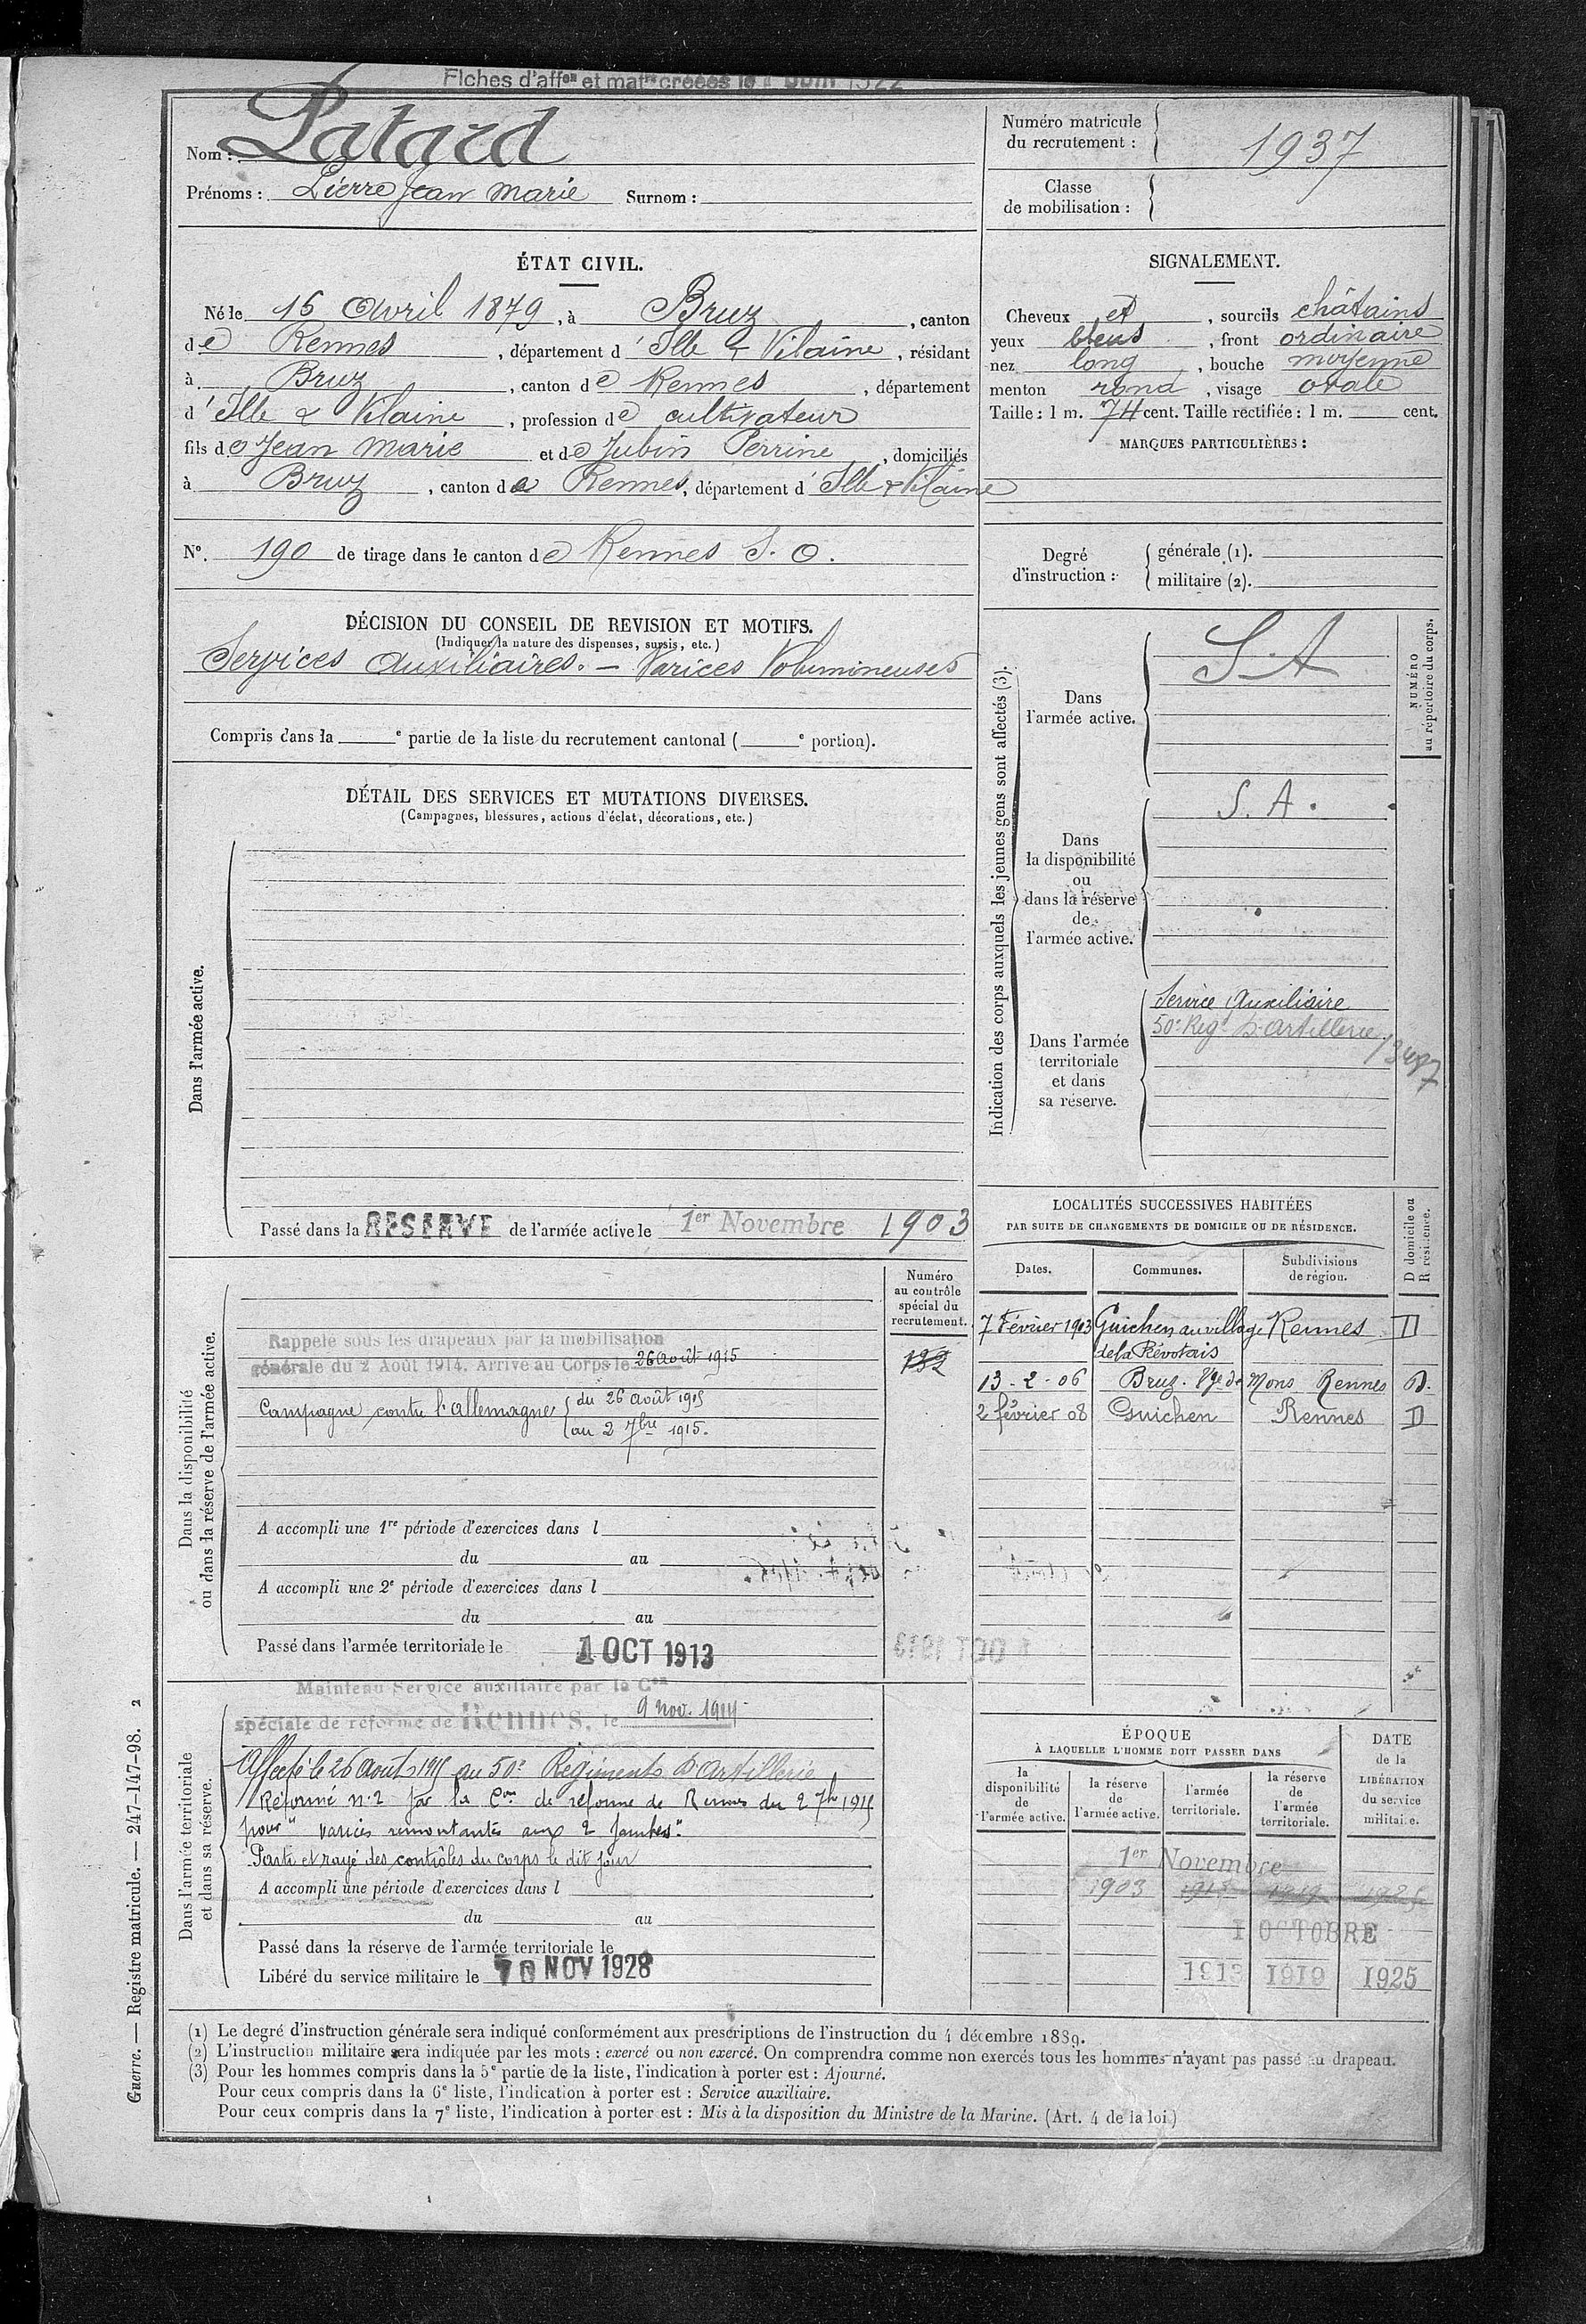 Fiches d'affon et matre créées le 1 Juin 1922
Nom : Patard
Prénoms : Pierre Jean Marie Surnom :
Numéro matricule
du recrutement : 1937
Classe
de mobilisation :
ÉTAT CIVIL.
Né le 15 Avril 1879, à Bruz, canton
de Rennes, département d'Ille & Vilaine, résidant
à Bruz, canton de Rennes, département
d'Ille & Vilaine, profession de cultivateur
fils de Jean Marie et de Jubin Perrine, domiciliés
à Bruz, canton de Rennes, département d'Ille & Vilaine
N°. 190 de tirage dans le canton de Rennes S. O.
SIGNALEMENT.
Cheveux et, sourcils châtains
yeux bleus, front ordinaire
nez long, bouche moyenne
menton rond, visage ovale
Taille : 1 m. 74 cent. Taille rectifiée : 1 m. cent.
MARQUES PARTICULIÈRES :
Degré
d'instruction :
générale (1).
militaire (2).
DÉCISION DU CONSEIL DE REVISION ET MOTIFS.
(Indiquer la nature des dispenses, sursis, etc.)
Services Auxiliaires. — Varices Volumineuses
Compris dans la e partie de la liste du recrutement cantonal ( e portion).
DÉTAIL DES SERVICES ET MUTATIONS DIVERSES.
(Campagnes, blessures, actions d'éclat, décorations, etc.)
Dans l'armée active.
Passé dans la RESERVE de l'armée active le 1er Novembre 1903
Indication des corps auxquels les jeunes gens sont affectés (3).
NUMÉRO
au répertoire du corps.
Dans
l'armée active.
S. A
Dans
la disponibilité
ou
dans la réserve
de
l'armée active.
S. A.
Dans l'armée
territoriale
et dans
sa réserve.
Service Auxiliaire
50e Regt d'Artillerie
LOCALITÉS SUCCESSIVES HABITÉES
PAR SUITE DE CHANGEMENTS DE DOMICILE OU DE RÉSIDENCE.
Dates. Communes. Subdivisions de région. D domicile ou R résidence.
7 Février 1903 Guichen au village Rennes D
de la Révotais
13-2-06 Bruz. Vge de Mons Rennes D.
2 février 08 Guichen Rennes D
Dans la disponibilité
ou dans la réserve de l'armée active.
Numéro
au contrôle
spécial du
recrutement.
192
Rappelé sous les drapeaux par la mobilisation
générale du 2 Août 1914. Arrivé au Corps le 26 août 1915
Campagne contre l'allemagne du 26 août 1915
au 2 7bre 1915.
A accompli une 1re période d'exercices dans l
du au
A accompli une 2e période d'exercices dans l
du au
Passé dans l'armée territoriale le 1 OCT 1913
Dans l'armée territoriale
et dans sa réserve.
Maintenu Service auxiliaire par la Con
spéciale de réforme de Rennes, le 9 nov. 1914
Affecté le 26 Août 1915 au 50e Regiment d'Artillerie
Réformé n°2 par la Con de réforme de Rennes du 2 7bre 1915
pour " varices remontantes aux 2 jambes".
Parti et rayé des contrôles du corps le dit jour
A accompli une période d'exercices dans l
du au
Passé dans la réserve de l'armée territoriale le
Libéré du service militaire le 10 NOV 1928
ÉPOQUE
À LAQUELLE L'HOMME DOIT PASSER DANS
la disponibilité de l'armée active.
la réserve de l'armée active.
l'armée territoriale.
la réserve de l'armée territoriale.
DATE
de la
LIBÉRATION
du service
militaire.
1er Novembre
1903 1913 1919 1925
1 OCTOBRE
1913 1919 1925
(1) Le degré d'instruction générale sera indiqué conformément aux prescriptions de l'instruction du 4 décembre 1889.
(2) L'instruction militaire sera indiquée par les mots : exercé ou non exercé. On comprendra comme non exercés tous les hommes n'ayant pas passé au drapeau.
(3) Pour les hommes compris dans la 5e partie de la liste, l'indication à porter est : Ajourné.
Pour ceux compris dans la 6e liste, l'indication à porter est : Service auxiliaire.
Pour ceux compris dans la 7e liste, l'indication à porter est : Mis à la disposition du Ministre de la Marine. (Art. 4 de la loi.)
Guerre. — Registre matricule. — 247-147-98. 2